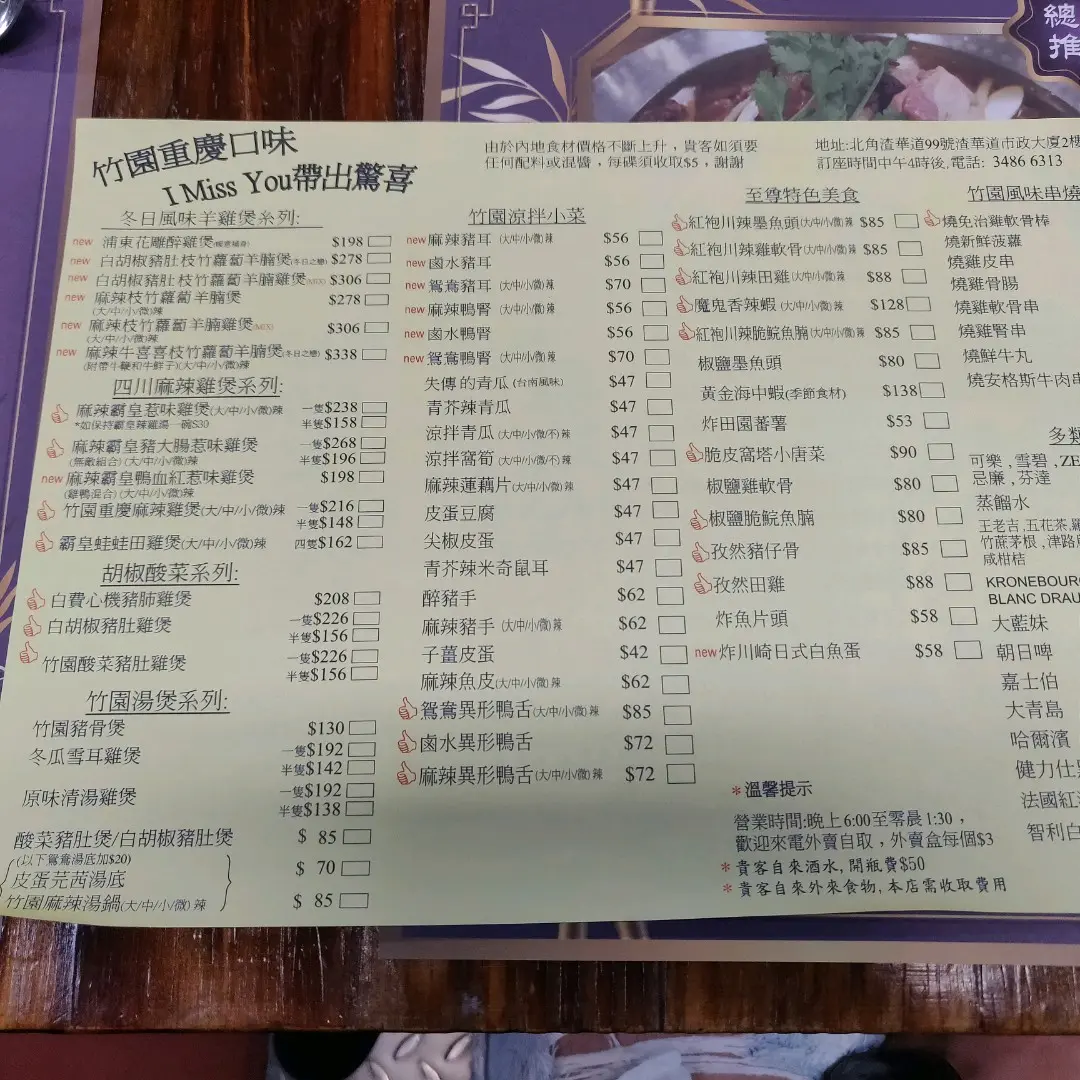 總
推
竹園重慶口味
I Miss You帶出驚喜
由於內地食材價格不斷上升，貴客如須要
任何配料或混醬，每碟須收取$5，謝謝
地址:北角渣華道99號渣華道市政大廈2樓
訂座時間中午4時後,電話: 3486 6313
冬日風味羊雞煲系列:
new 浦東花雕醉雞煲 $198
new 白胡椒豬肚枝竹蘿蔔羊腩煲(冬日之戀) $278
new 白胡椒豬肚枝竹蘿蔔羊腩雞煲(MIX) $306
new 麻辣枝竹蘿蔔羊腩煲 $278
(大/中/小/微)辣
new 麻辣枝竹蘿蔔羊腩雞煲(MIX) $306
(大/中/小/微)辣
new 麻辣牛喜喜枝竹蘿蔔羊腩煲(冬日之戀) $338
(附帶牛鞭和牛鮮子)(大/中/小/微)辣
四川麻辣雞煲系列:
麻辣霸皇惹味雞煲(大/中/小/微)辣 一隻$238
*如保特霸皇辣雞湯一碗$30 半隻$158
麻辣霸皇豬大腸惹味雞煲 一隻$268
(無敵組合)(大/中/小/微)辣 半隻$196
new 麻辣霸皇鴨血紅惹味雞煲 $198
(雞鴨混合)(大/中/小/微)辣
竹園重慶麻辣雞煲(大/中/小/微)辣 一隻$216
半隻$148
霸皇蛙蛙田雞煲(大/中/小/微)辣 四隻$162
胡椒酸菜系列:
白費心機豬肺雞煲 $208
白胡椒豬肚雞煲 一隻$226
半隻$156
竹園酸菜豬肚雞煲 一隻$226
半隻$156
竹園湯煲系列:
竹園豬骨煲 $130
冬瓜雪耳雞煲 一隻$192
半隻$142
原味清湯雞煲 一隻$192
半隻$138
酸菜豬肚煲/白胡椒豬肚煲 $ 85
(以下鴛鴦湯底加$20)
皮蛋芫茜湯底 $ 70
竹園麻辣湯鍋(大/中/小/微)辣 $ 85
竹園涼拌小菜
new 麻辣豬耳 (大/中/小/微)辣 $56
new 鹵水豬耳 $56
new 鴛鴦豬耳 (大/中/小/微)辣 $70
new 麻辣鴨腎 (大/中/小/微)辣 $56
new 鹵水鴨腎 $56
new 鴛鴦鴨腎 (大/中/小/微)辣 $70
失傳的青瓜 (台南風味) $47
青芥辣青瓜 $47
涼拌青瓜 (大/中/小/微/不)辣 $47
涼拌窩筍 (大/中/小/微/不)辣 $47
麻辣蓮藕片(大/中/小/微)辣 $47
皮蛋豆腐 $47
尖椒皮蛋 $47
青芥辣米奇鼠耳 $47
醉豬手 $62
麻辣豬手 (大/中/小/微)辣 $62
子薑皮蛋 $42
麻辣魚皮(大/中/小/微)辣 $62
鴛鴦異形鴨舌(大/中/小/微)辣 $85
鹵水異形鴨舌 $72
麻辣異形鴨舌(大/中/小/微)辣 $72
至尊特色美食
紅袍川辣墨魚頭(大/中/小/微)辣 $85
紅袍川辣雞軟骨(大/中/小/微)辣 $85
紅袍川辣田雞(大/中/小/微)辣 $88
魔鬼香辣蝦 (大/中/小/微)辣 $128
紅袍川辣脆鯇魚腩(大/中/小/微)辣 $85
椒鹽墨魚頭 $80
黃金海中蝦(季節食材) $138
炸田園蕃薯 $53
脆皮窩塔小唐菜 $90
椒鹽雞軟骨 $80
椒鹽脆鯇魚腩 $80
孜然豬仔骨 $85
孜然田雞 $88
炸魚片頭 $58
new 炸川崎日式白魚蛋 $58
*溫馨提示
營業時間:晚上6:00至零晨1:30，
歡迎來電外賣自取，外賣盒每個$3
*貴客自來酒水,開瓶費$50
*貴客自來外來食物,本店需收取費用
竹園風味串燒
燒免治雞軟骨棒
燒新鮮菠蘿
燒雞皮串
燒雞骨腸
燒雞軟骨串
燒雞腎串
燒鮮牛丸
燒安格斯牛肉串
多類
可樂,雪碧,ZE
忌廉,芬達
蒸餾水
王老吉,五花茶,
竹蔗茅根,津路
咸柑桔
KRONEBOURG
BLANC DRAU
大藍妹
朝日啤
嘉士伯
大青島
哈爾濱
健力仕
法國紅
智利白